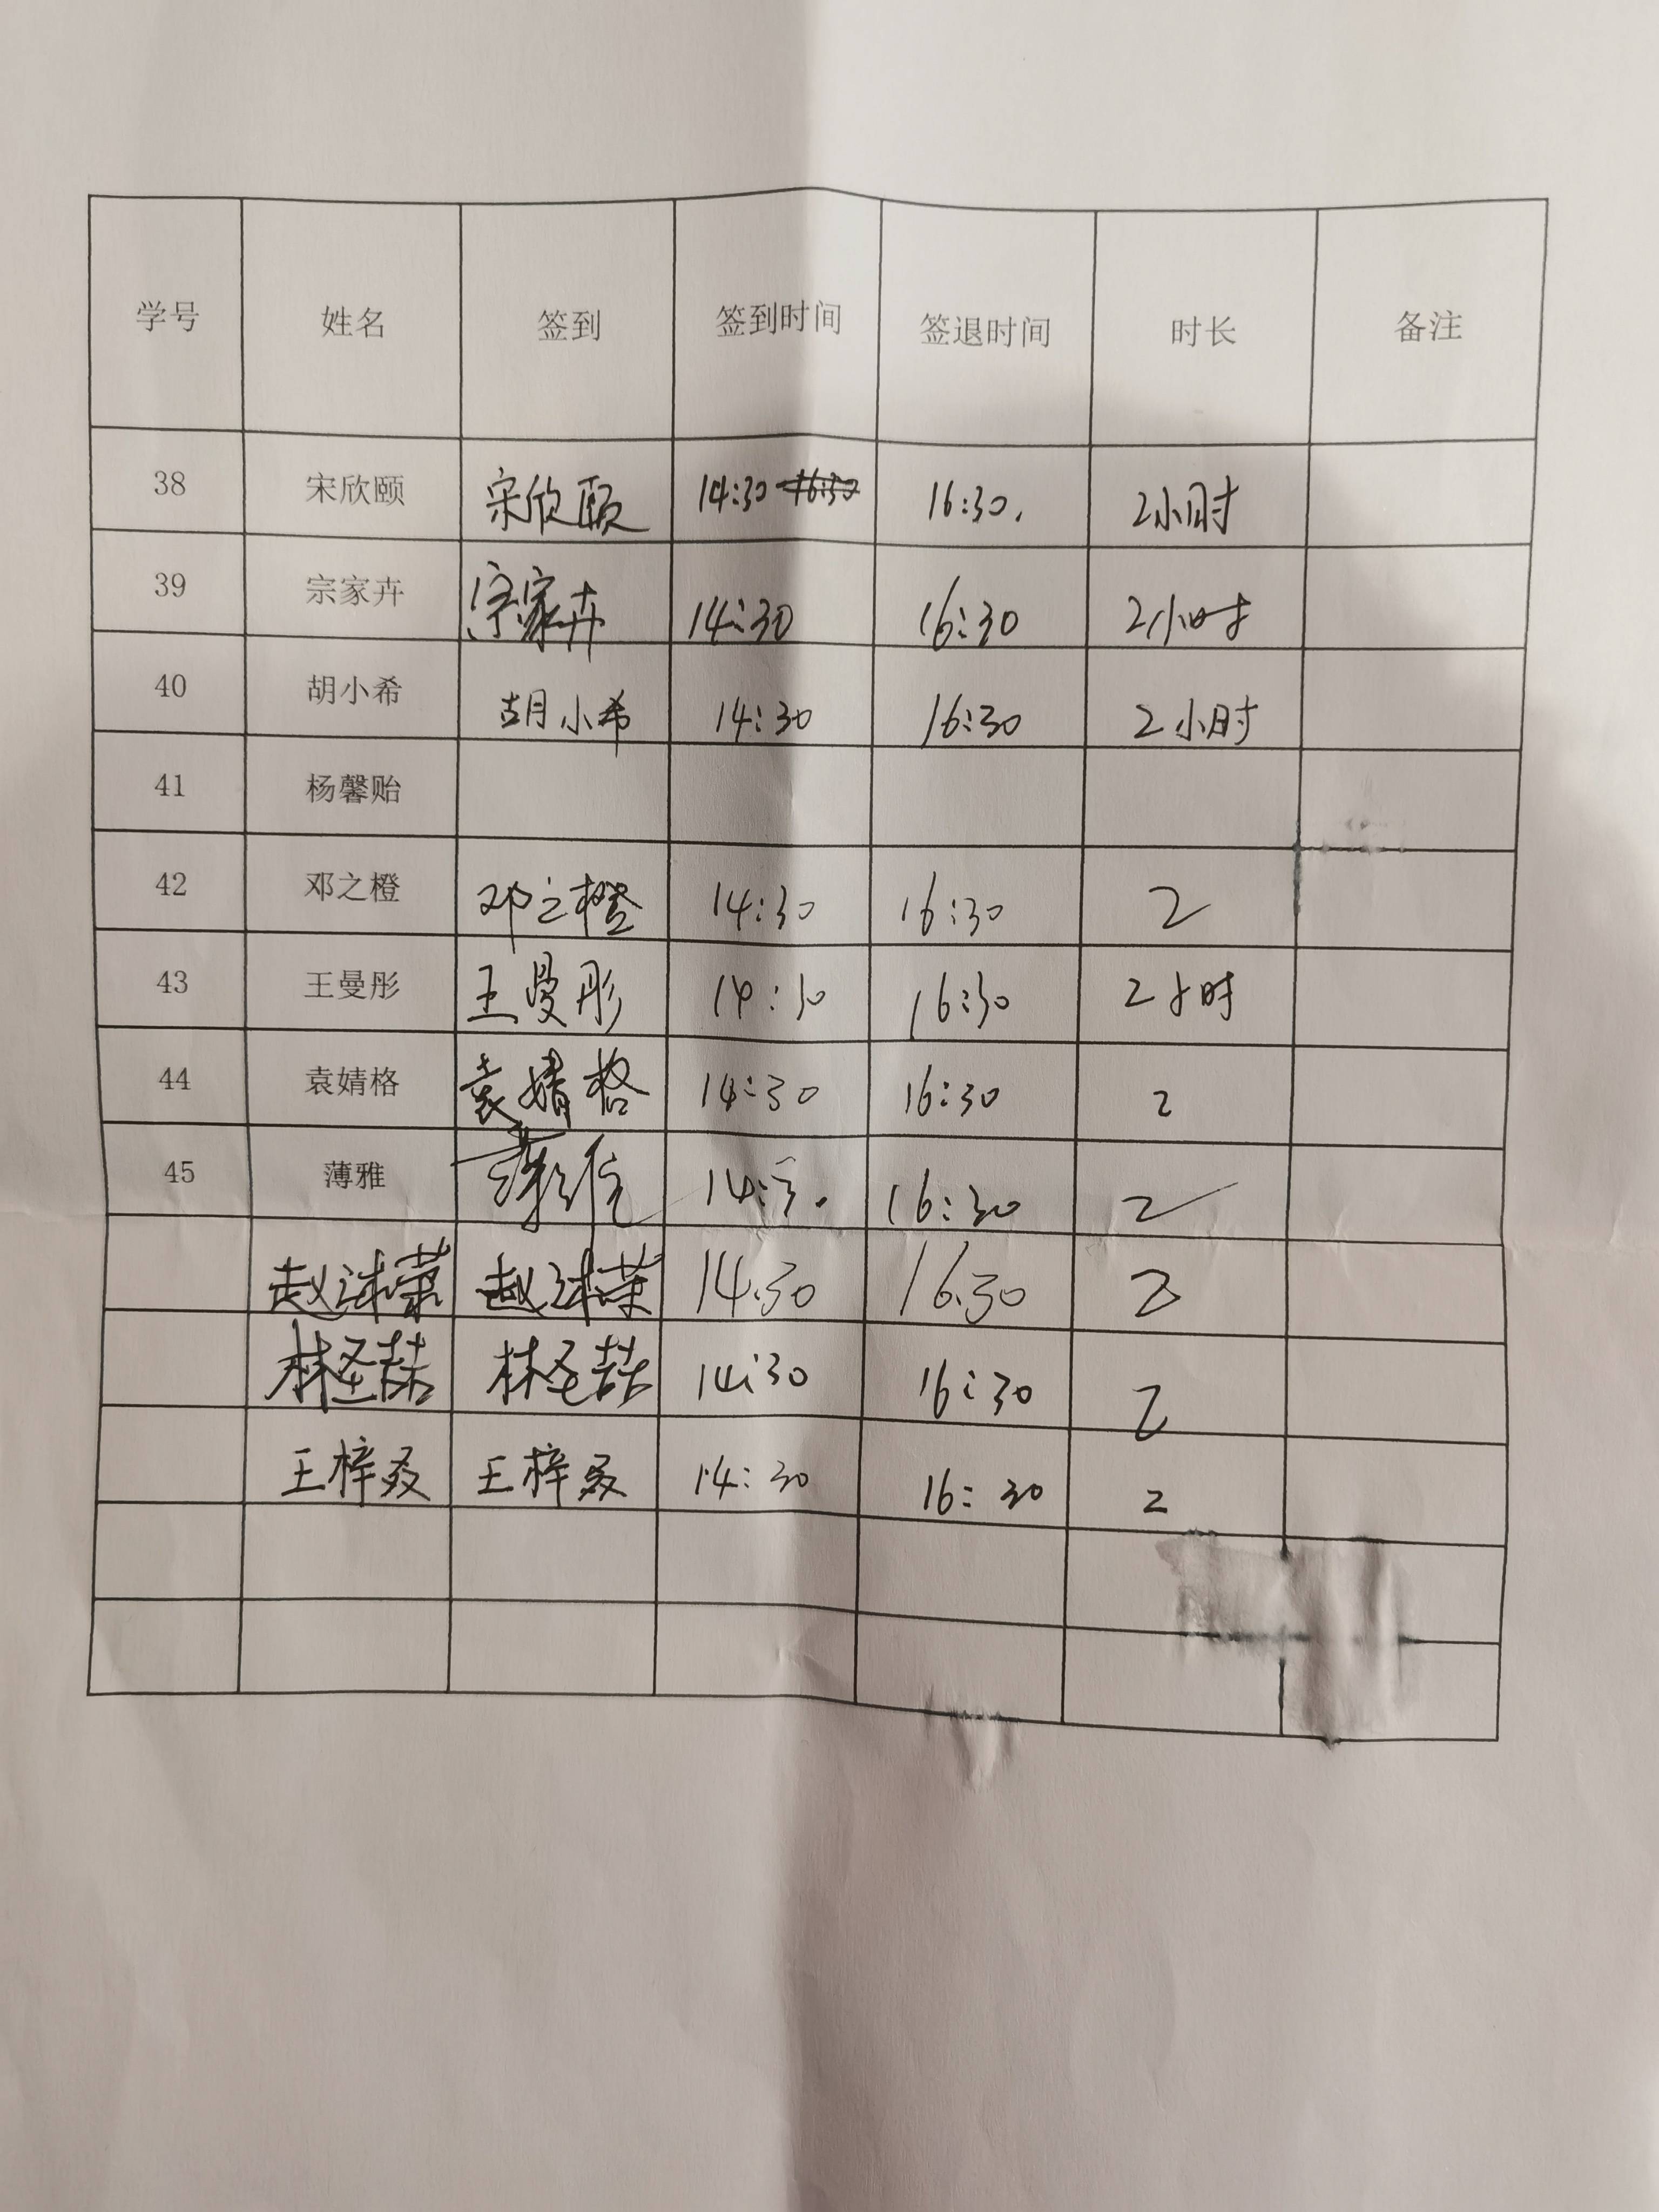 学号 姓名 签到 签到时间 签退时间 时长 备注
38 宋欣颐 宋欣颐 14:30 16:30. 2小时
39 宗家卉 宗家卉 14:30 16:30 2小时
40 胡小希 胡小希 14:30 16:30 2小时
41 杨馨贻
42 邓之橙 邓之橙 14:30 16:30 2
43 王曼彤 王曼彤 14:30 16:30 2小时
44 袁婧格 袁婧格 14:30 16:30 2
45 薄雅 16:30 2
14.30 16.30 2
林圣喆 林圣喆 14:30 16:30 2
王梓叒 王梓叒 14:30 16:30 2